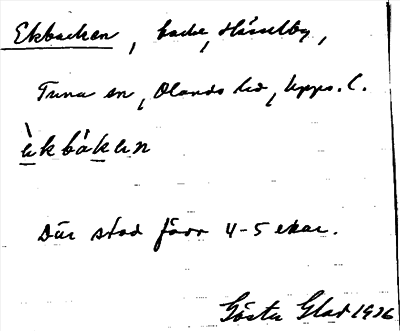 Ekbacken, backe, Hässelby,
Tuna sn, Olands hd, Upps. l.
èkbákan
Där stod förr 4-5 ekar.
Gösta Glad 1936